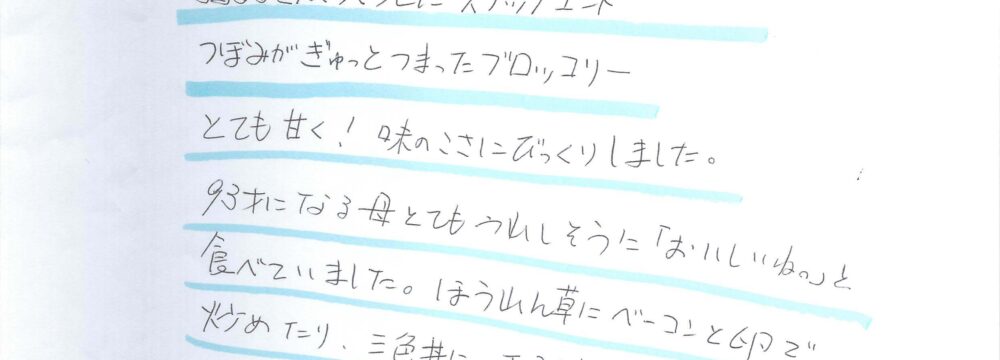 つぼみがぎゅっとつまったブロッコリー
とても甘く！味のこさにびっくりしました。
93才になる母とてもうれしそうに「おいしいねっ」と
食べていました。ほうれん草にベーコンと卵で
炒めたり、三色丼に